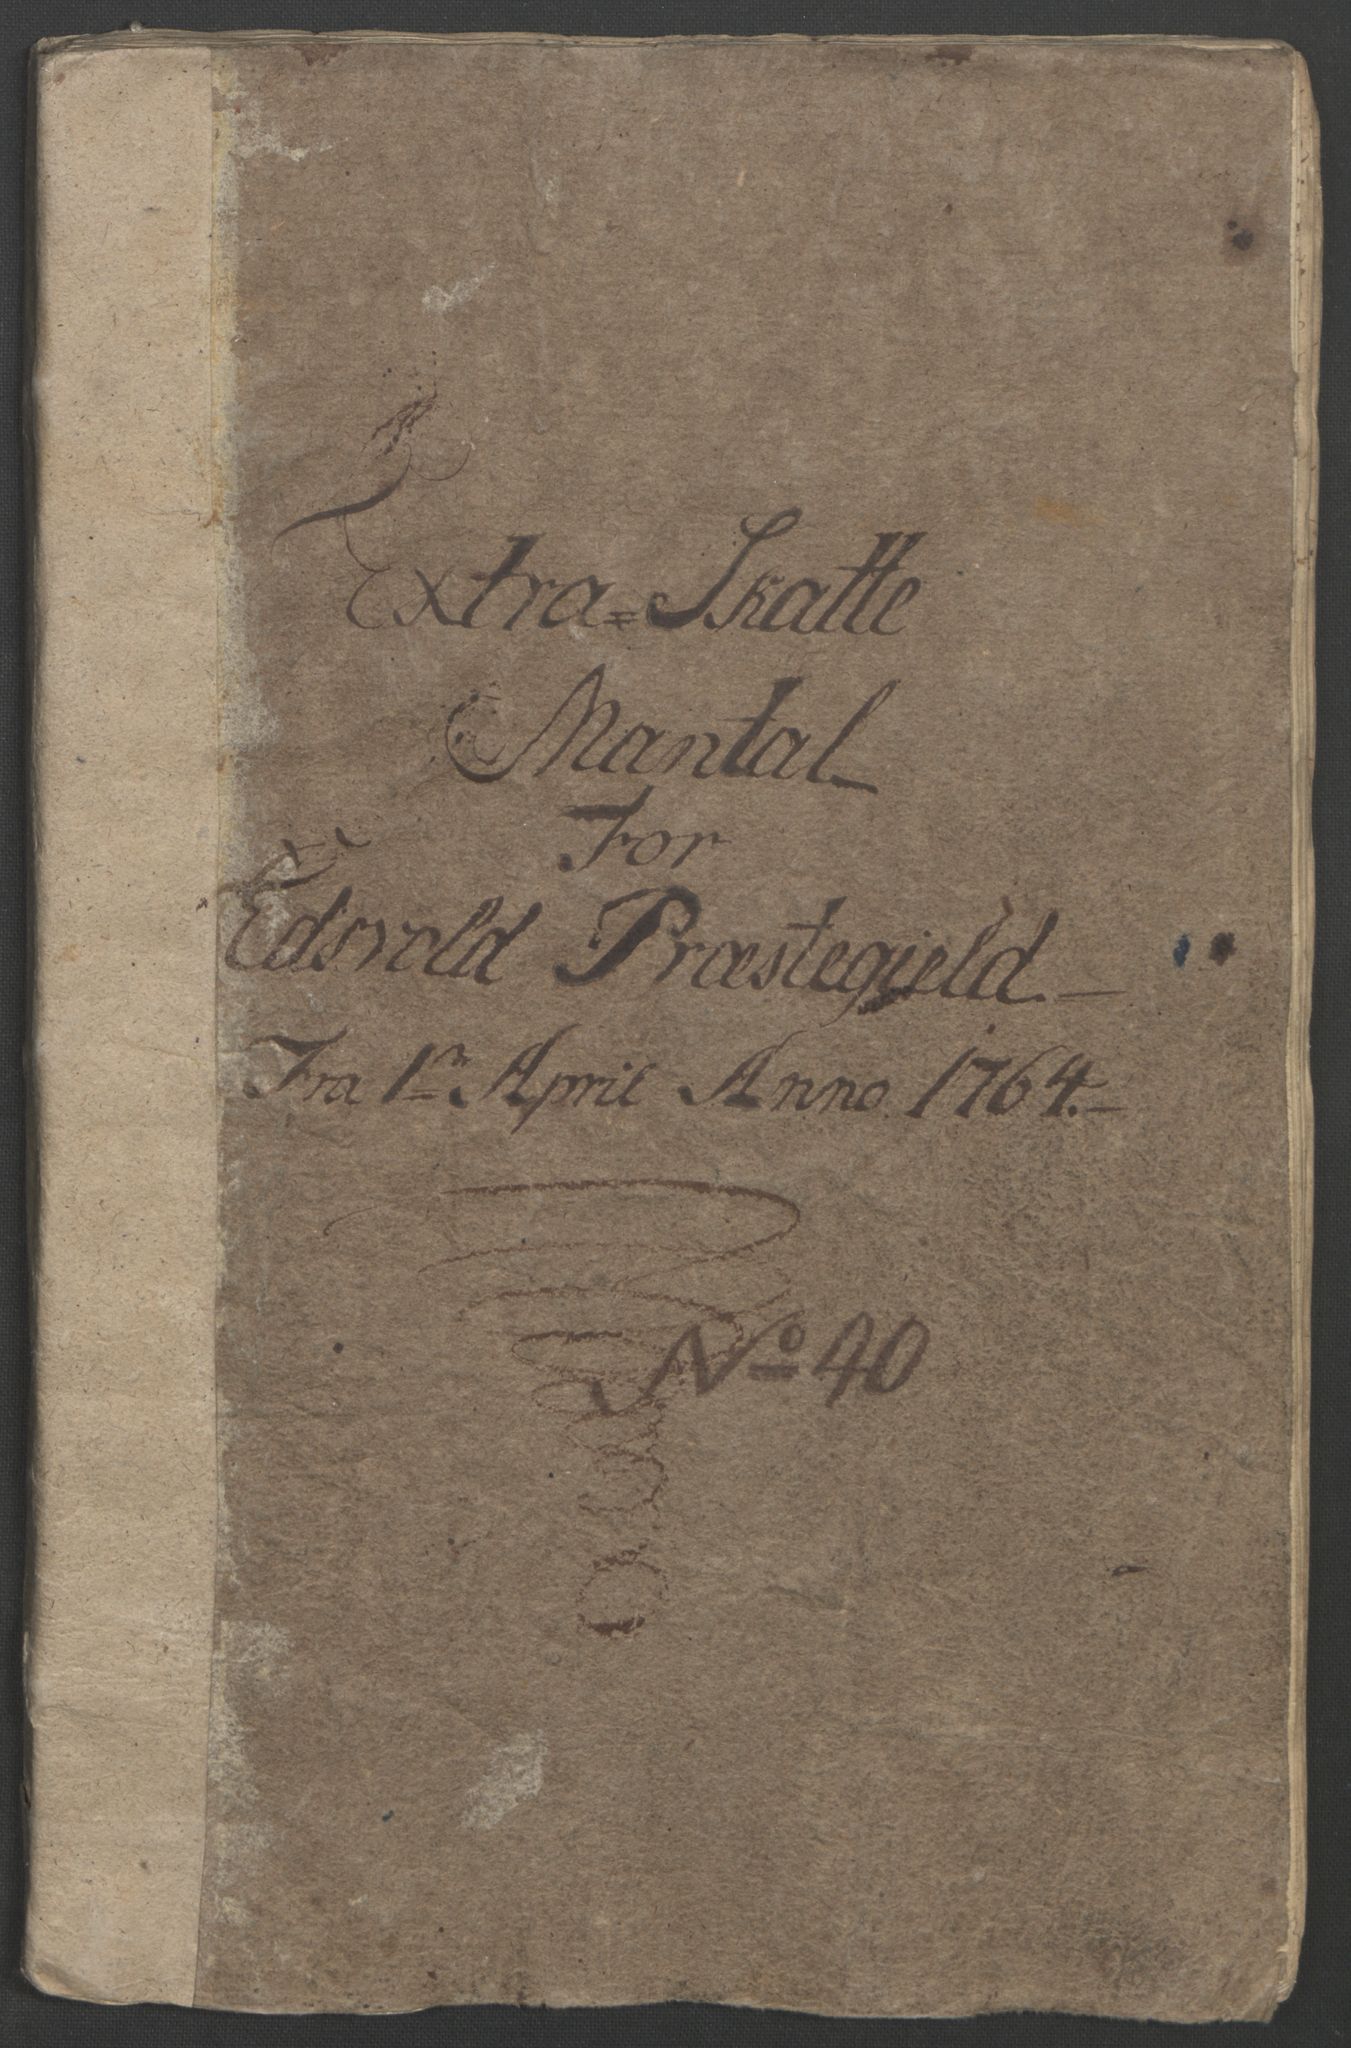 Extra=Skatte
Mantal
For
Edsvold Præstegield.
Fra 1ᵐ April Anno 1764.
Nº 40